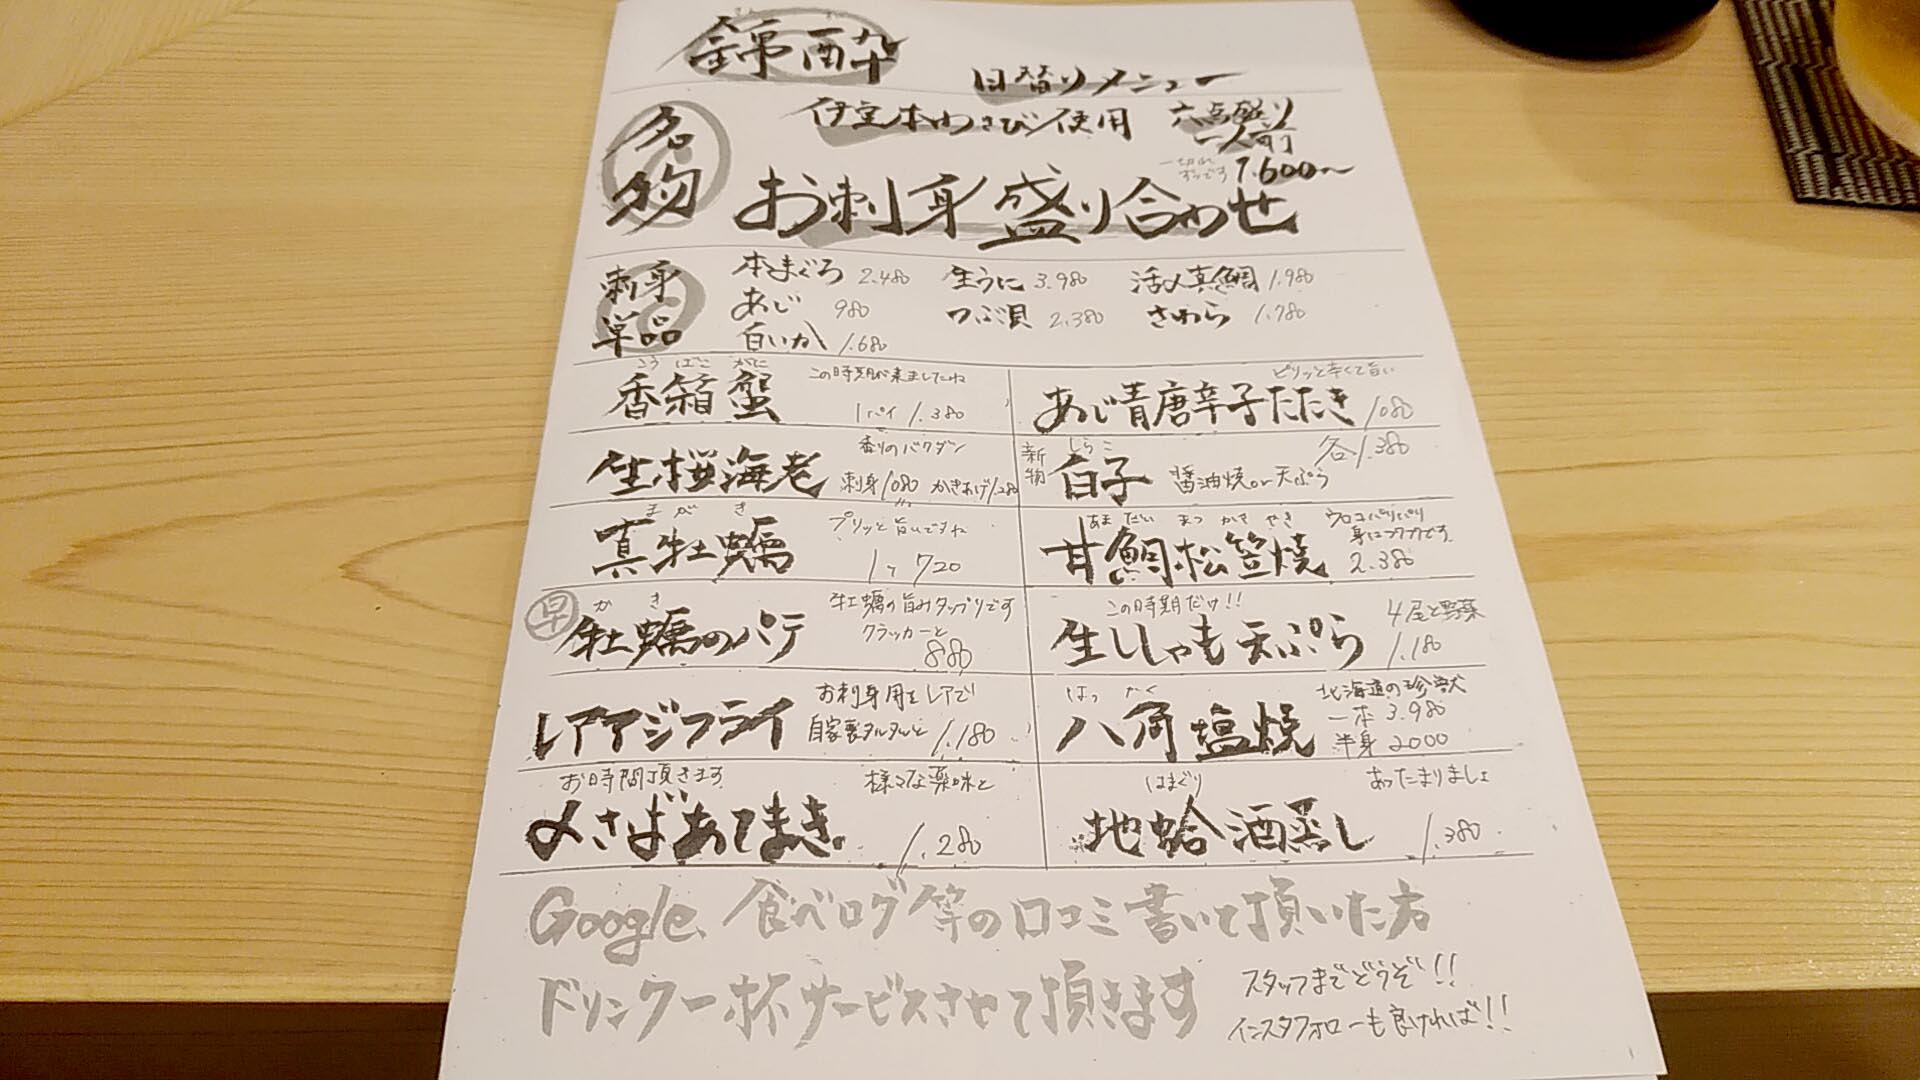 錦酔
日替りメニュー
名物
伊豆本わさび使用
六点盛り
一人前
一切れ
ずつです
1.600〜
お刺身盛り合わせ
刺身
単品
本まぐろ 2.480
生うに 3.980
活〆真鯛 1.980
あじ 980
つぶ貝 2.380
さわら 1.780
白いか 1.680
こうばこがに
香箱蟹
この時期が来ましたね
1パイ 1.380
ピリッと辛くて旨い
あじ青唐辛子たたき 1080
生桜海老
香りのバクダン
刺身 1080 かきあげ 1.280
新物
しらこ
白子
各1.380
醤油焼or天ぷら
まがき
真牡蠣
プリッと旨いですね
1ヶ 720
あまだいまつかさやき
甘鯛松笠焼
ウロコパリパリ
身はフワフワです。
2.380
早
かき
牡蠣のパテ
牡蠣の旨みタップリです
クラッカーと
880
この時期だけ!!
生ししゃも天ぷら
4尾と野菜
1.180
レアアジフライ
お刺身用をレアで
自家製タルタルと 1.180
はっかく
八角塩焼
北海道の珍獣
一本 3.980
半身 2000
お時間頂きます
様々な薬味と
〆さばあてまき。
1.280
はまぐり
地蛤酒蒸し
あったまりましょ
1.380
Google、食べログ等の口コミ書いて頂いた方
ドリンク一杯サービスさせて頂きます
スタッフまでどうぞ!!
インスタフォローも良ければ!!